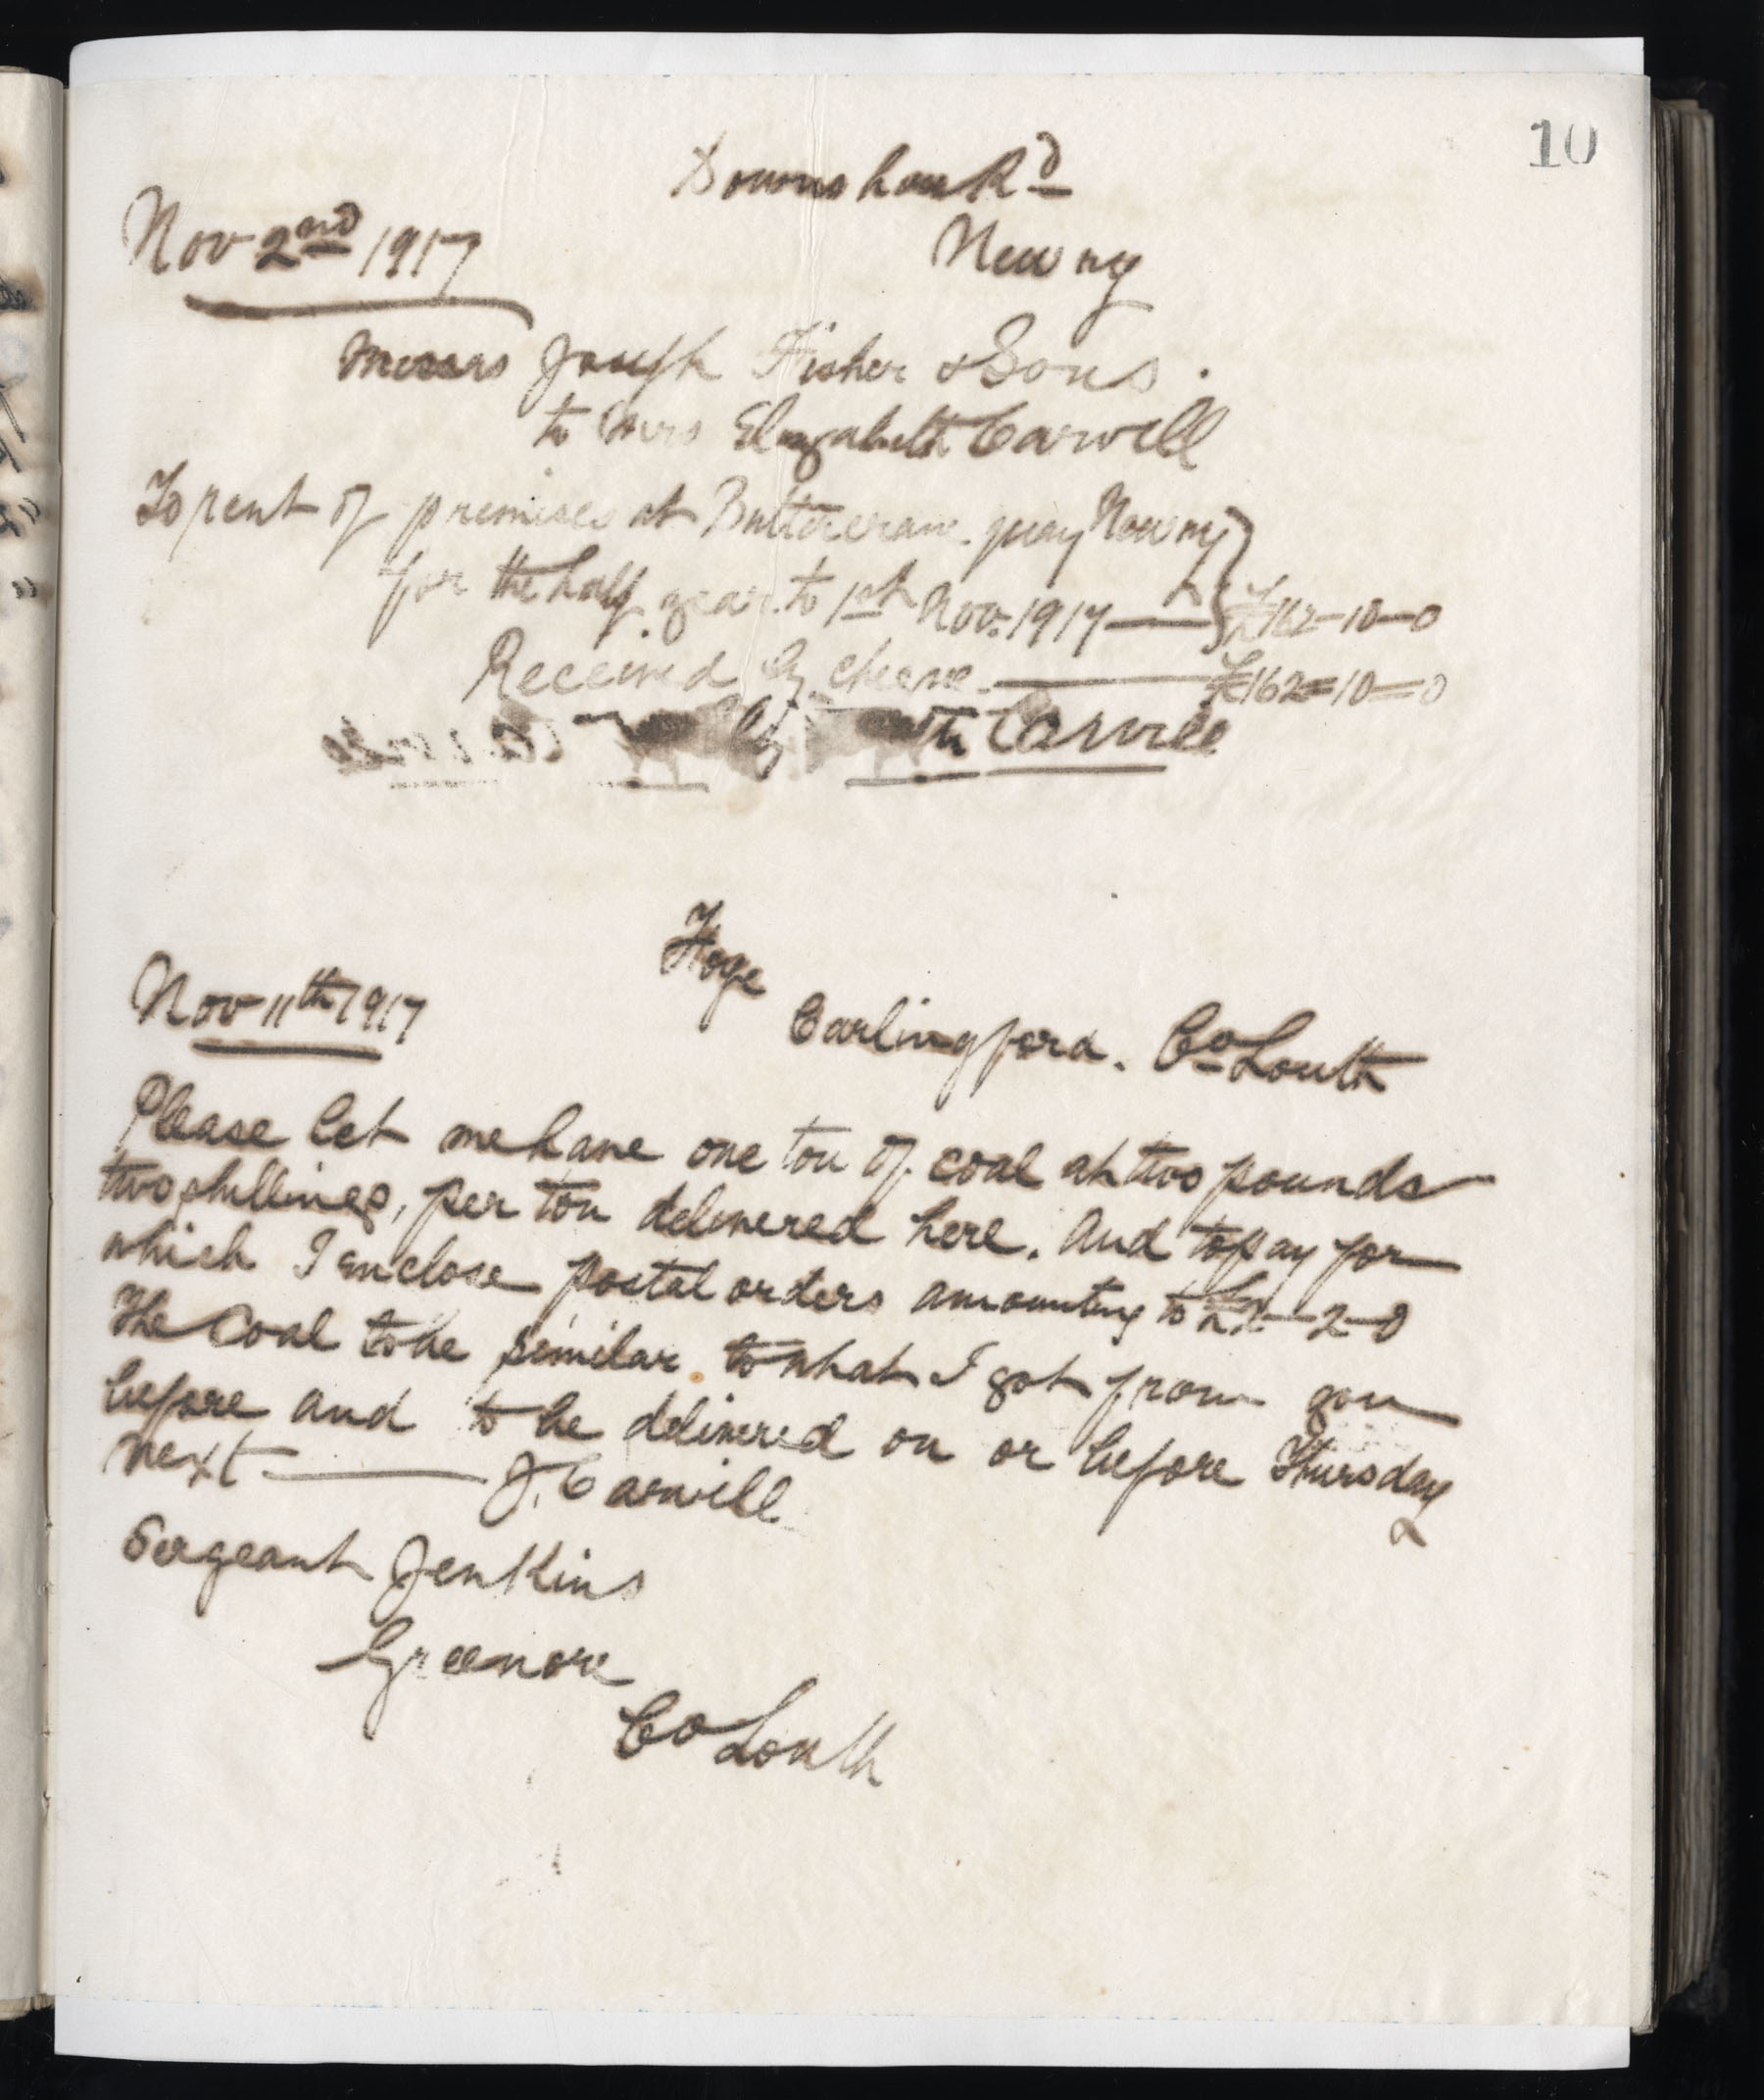 10
Downshire Rd
Nov 2nd 1917
Newry
Messrs Joseph Fisher & Sons.
to Mrs Elizabeth Carvill
To rent of premises at Buttercrane quay Newry
for the half year to 1st Nov. 1917 — £162-10-0
Received by cheque — £162=10=0
Carvill
Nov 11th 1917
Carlingford. Co Louth
Please let me have one ton of coal at two pounds
two shillings, per ton delivered here. And to pay for
which I enclose postal orders amounting to £2-2-0
The Coal to be similar to what I got from you
before and to be delivered on or before Thursday
next — J. Carvill
Sergeant Jenkins
Greenore
Co Louth